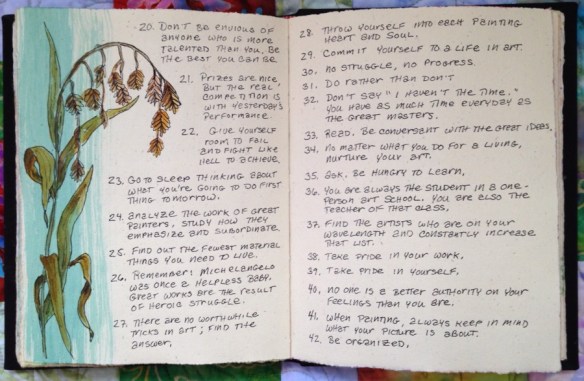 20. Don't be envious of
anyone who is more
talented than you. Be
the best you can be.
21. Prizes are nice
but the real
competition is
with yesterday's
performance.
22. Give yourself
room to fail
and fight like
hell to achieve.
23. Go to sleep thinking about
what you're going to do first
thing tomorrow.
24. Analyze the work of great
painters. Study how they
emphasize and subordinate.
25. Find out the fewest material
things you need to live.
26. Remember: Michelangelo
was once a helpless baby.
Great works are the result
of heroic struggle.
27. There are no worthwhile
tricks in art; find the
answer.
28. Throw yourself into each painting
heart and soul.
29. Commit yourself to a life in art.
30. No struggle, no progress.
31. Do rather than don't
32. Don't say "I haven't the time."
You have as much time everyday as
the great masters.
33. Read. Be conversant with the great ideas.
34. No matter what you do for a living,
nurture your art.
35. Ask. Be hungry to learn.
36. You are always the student in a one-
person art school. You are also the
teacher of that class.
37. Find the artists who are on your
wavelength and constantly increase
that list.
38. Take pride in your work.
39. Take pride in yourself.
40. No one is a better authority on your
feelings than you are.
41. When painting, always keep in mind
what your picture is about.
42. Be organized.